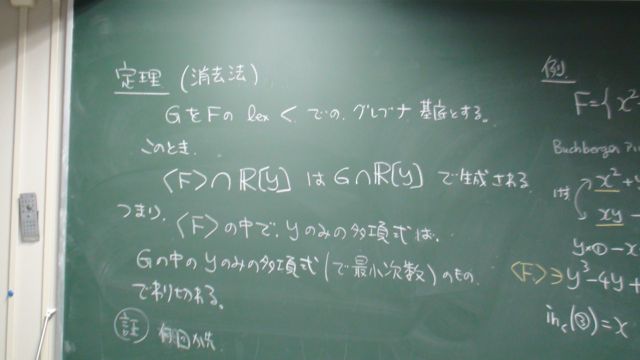 定理 (消去法)
GをFの lex < での、グレブナ 基底とする。
このとき、
⟨F⟩∩ℝ[y] は G∩ℝ[y] で生成される
つまり、⟨F⟩の中で、yのみの多項式は、
Gの中のyのみの多項式(で最小次数)のもの
でわり切れる。
証
例
F={x²
Buchberger
x²+y
xy −
y×① − x
⟨F⟩∋y³−4y+
in<(③)=x